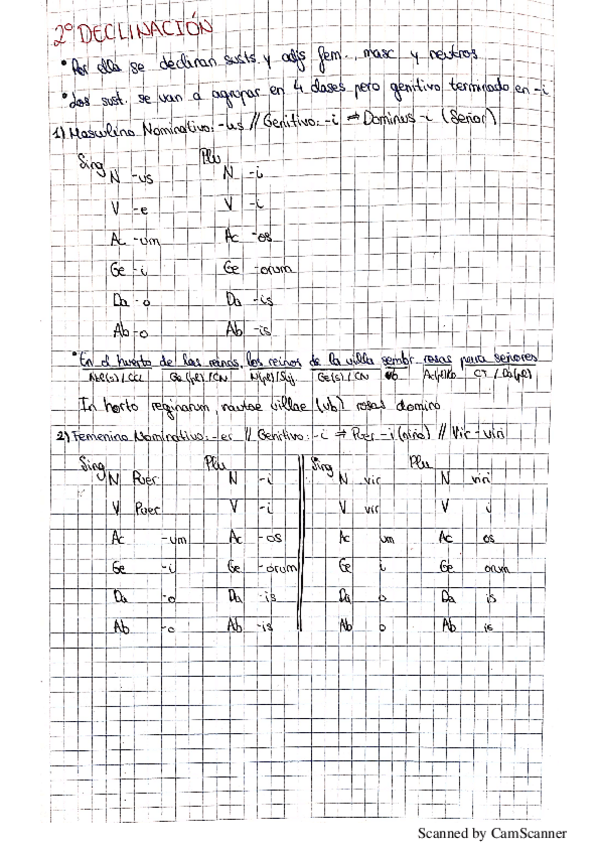 2º DECLINACIÓN
• Por ella se declinan susts. y adjs fem., masc y neutros
• Los sust. se van a agrupar en 4 clases pero genitivo terminado en -i
1) Masculino Nominativo: -us // Genitivo: -i ⇒ Dominus -i (Señor)
Sing Plu
N -us N -i
V -e V -i
Ac -um Ac -os
Ge -i Ge -orum
Da -o Da -is
Ab -o Ab -is
• En el huerto de las reinas, los reinos de la villa sembr. rosas para señores
Abl(s)/CCL Ge(pl)/CN N(pl)/Suj. Ge(s)/CN vb Ac(pl) CI/Da(pl)
In horto reginarum, nautae villae (vb) rosas domino
2) Femenino Nominativo: -er // Genitivo: -i ⇒ Puer -i (niño) // Vir - viri
Sing Plu Sing Plu
N Puer N -i N vir N viri
V Puer V -i V vir V i
Ac -um Ac -os Ac um Ac os
Ge -i Ge -orum Ge i Ge orum
Da -o Da -is Da o Da is
Ab -o Ab -is Ab o Ab is
Scanned by CamScanner